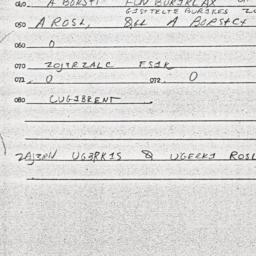 040 A BORSTI FUN BURIRLAX
GISTTELTE BURIKES
050 A ROSL, 8LL A BOPSTCX
060 0
070 ZOJTRZALC FSIK
071 0 072 0
080 CUGIBRENT
ZAJZPN UG3RKIS & UGERKI ROSL